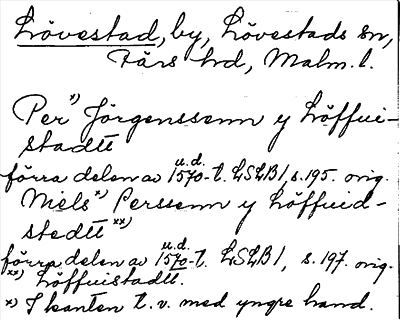 Lövestad, by, Lövestads sn,
Färs hd, Malm. l.
Per x) Jörgenssenn y Löffui-
stadtt
förra delen av u.d. 1570-t. LSLB 1, s. 195. orig.
Niels x) Perssenn y Löffuid-
stedtt xx)
förra delen av u.d. 1570-t. LSLB 1, s. 197. orig.
xx) Löffuistadtt.
x) I kanten t. v. med yngre hand.